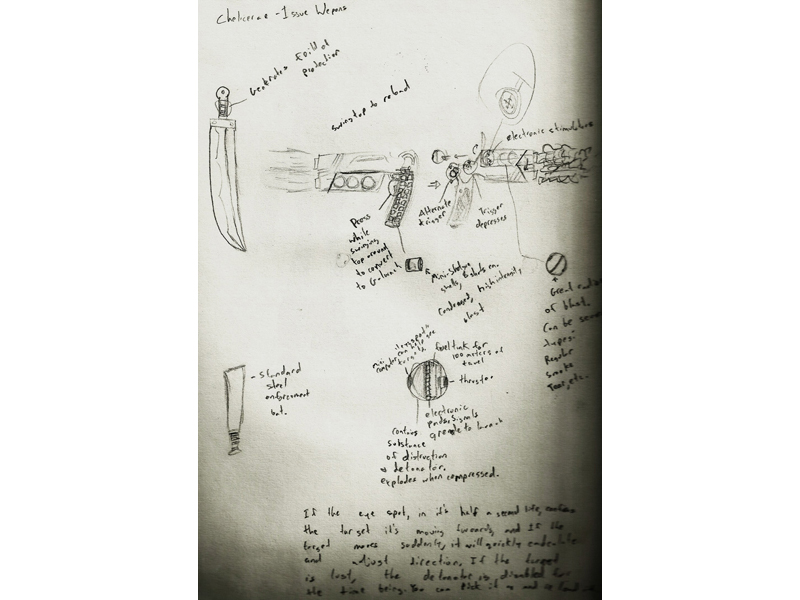 Chelicerae - Issue Wepons
field of
protection
swing top to reload
electronic stimulators
Press
while
swinging
top around
to convert
to G-launch
Alternate
trigger
Trigger
depresses
Mini-shotgun
shells,
Condensed, high intensity,
blast
Great radius
of blast.
Can be several
Regular
smoke
Tear, etc.
Standard
steel
enforcement
bat.
mini
computer
target
fuel tank for
100 meters of
travel
thruster
electronic
pads, signals
grenade to launch
contains
substance
of distruction
& detonator.
explodes when compressed.
If the eye spot, in it's half a second life,
the target it's moving towards, and if the
target moves suddenly, it will quickly calculate
and adjust direction. If the target
is lost, the detonator is disabled for
the time being. You can pick it up and